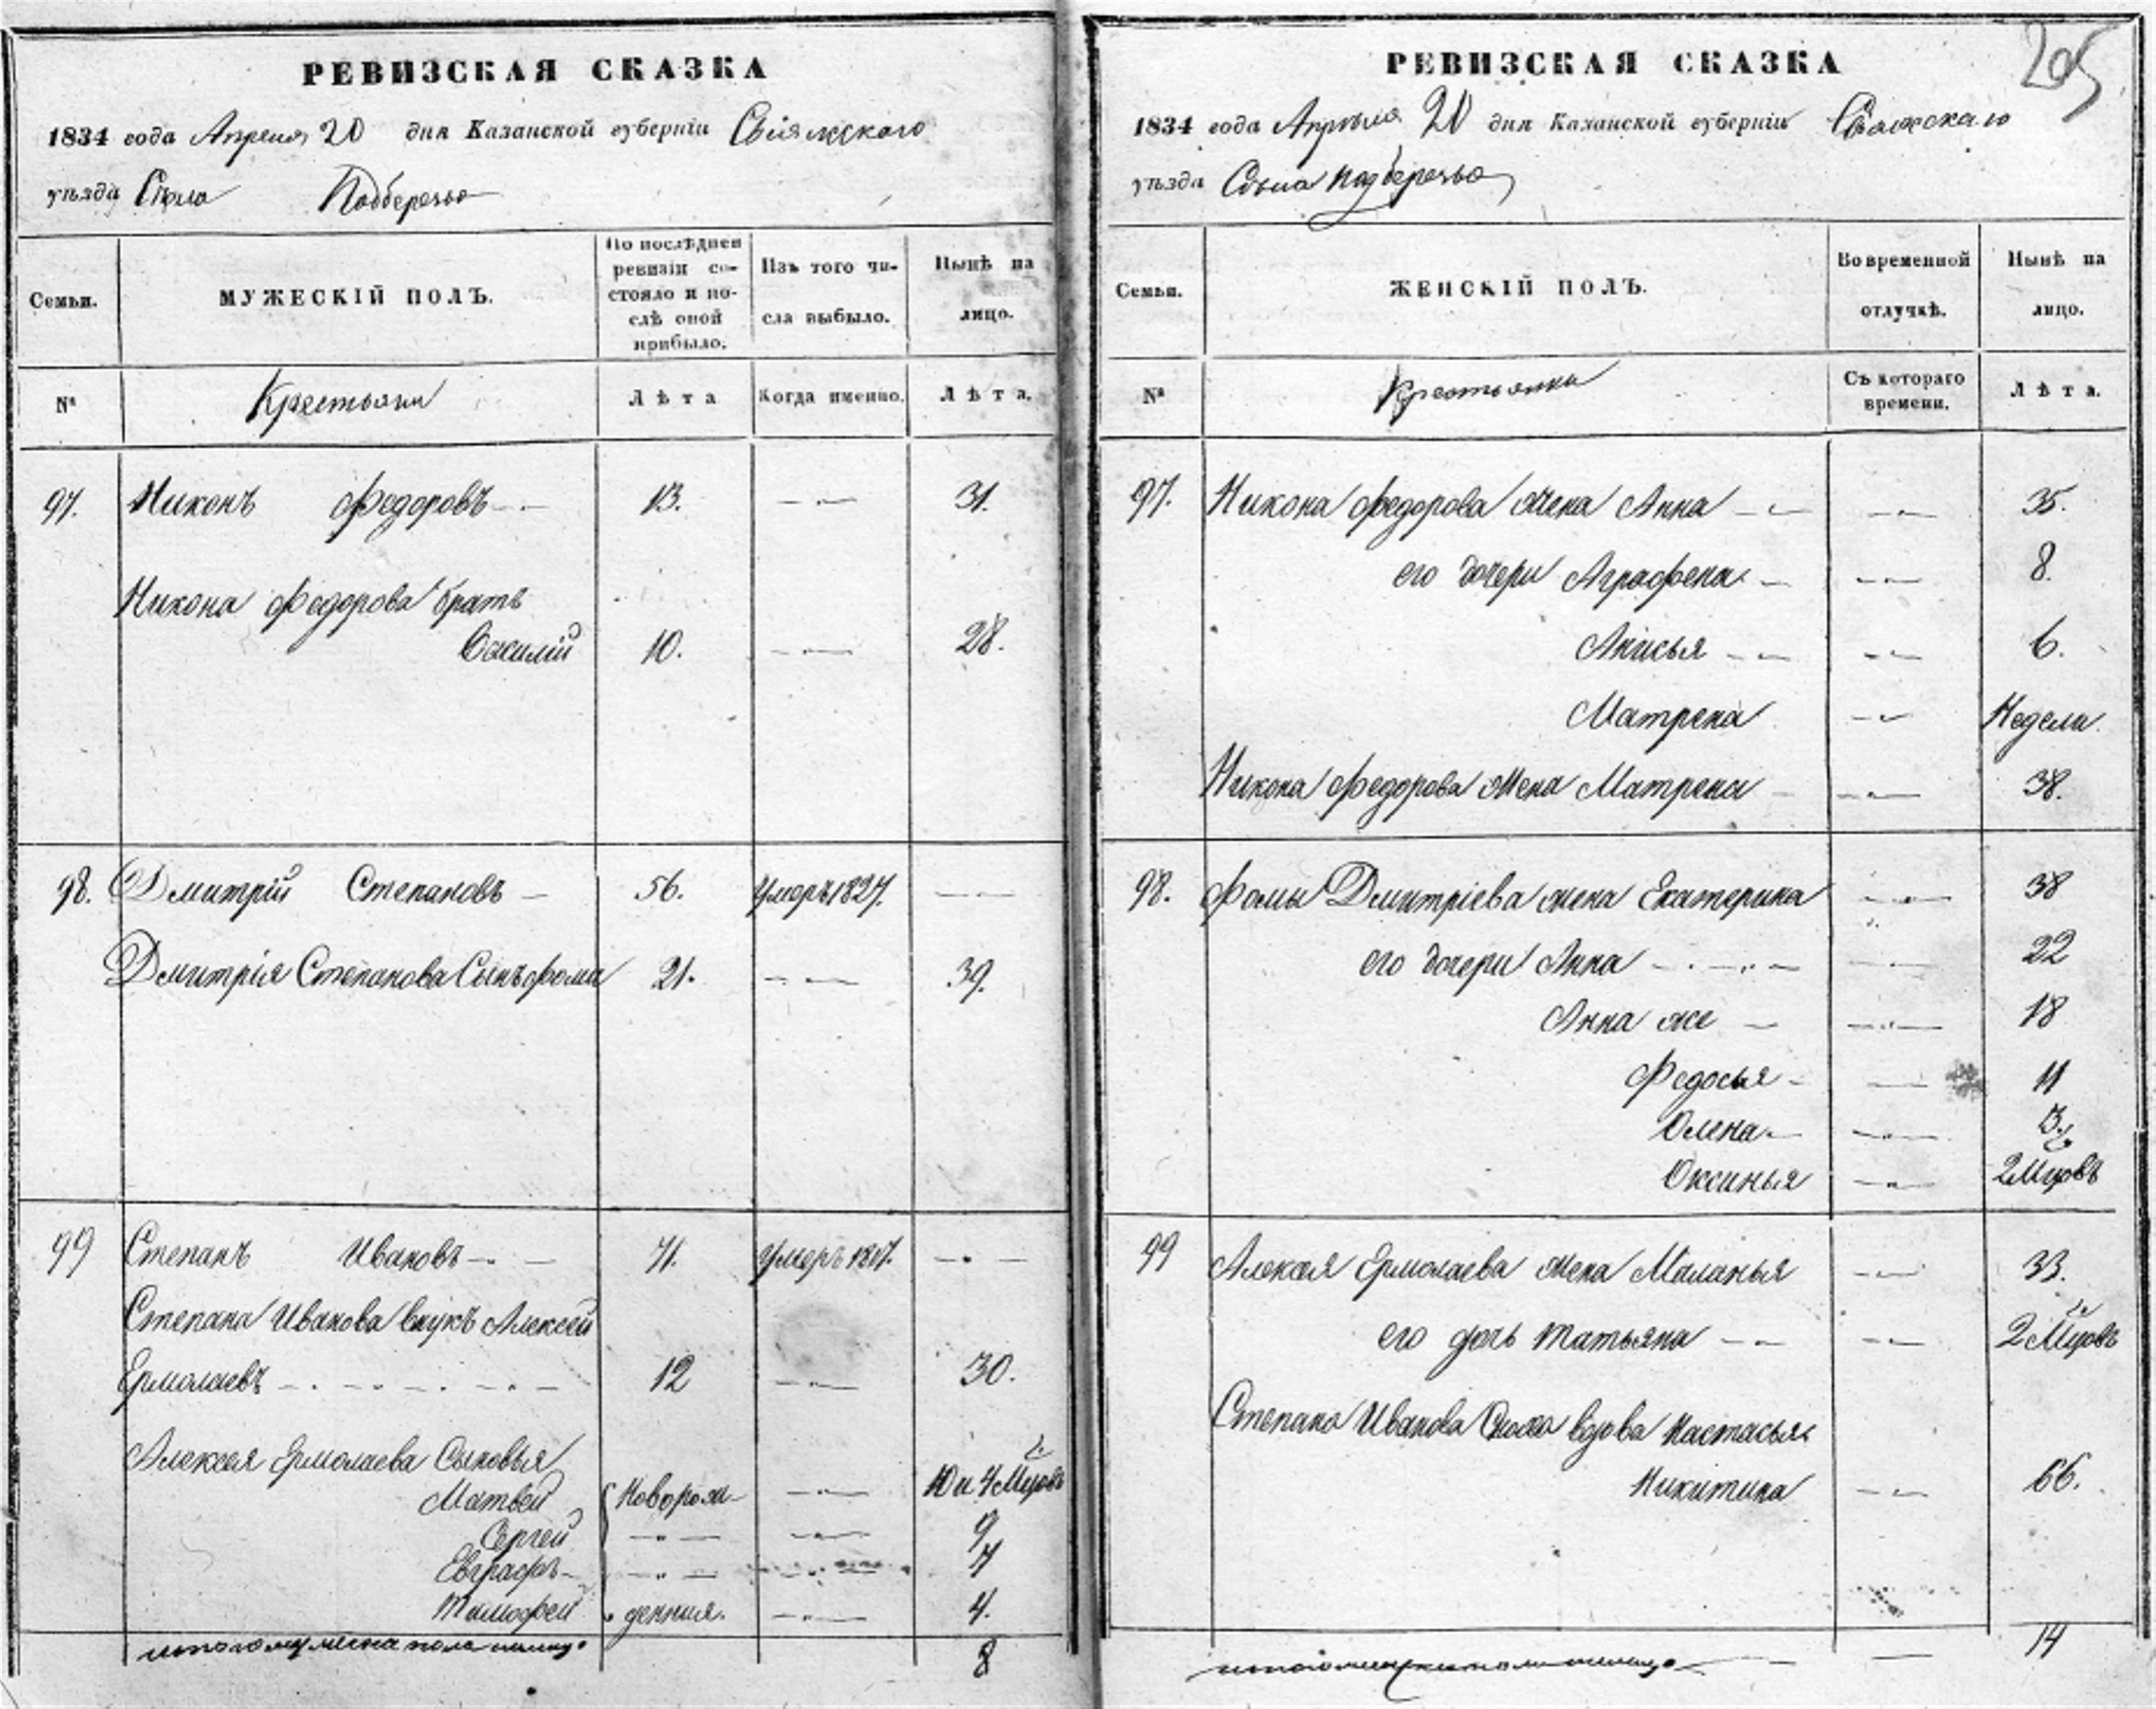 РЕВИЗСКАЯ СКАЗКА
1834 года Апреля 20 дня Казанской губерніи Свіяжского
уѣзда Села Подберезья
Семьи.
МУЖЕСКІЙ ПОЛЪ.
По послѣдней ревизіи со-
стояло и по-
слѣ оной
прибыло.
Изъ того чи-
сла выбыло.
Нынѣ на
лицо.
№
Крестьяни
Лѣта
Когда именно.
Лѣта.
97. Никонъ Федоровъ 13. 31.
Никона Федорова братъ
Василий 10. 28.
98. Дмитрій Степановъ 56. Умеръ 1827.
Дмитрія Степанова Сынъ фома 21. 39.
99 Степанъ Ивановъ 71. Умеръ
Степана Иванова внукъ Алексей
Ермолаевъ 12 30.
Алексея Ермолаева Сыновья
Матвей Новорож- 10 и 4 Мцовъ
Сергей 9
Евграфъ 7
Тимофей денния. 4.
итого мужеска пола налицо 8
РЕВИЗСКАЯ СКАЗКА
205
1834 года Апрѣля 20 дня Казанской губерніи Свіяжскаго
уѣзда Села подберезья
Семьи.
ЖЕНСКІЙ ПОЛЪ.
Во временной
отлучкѣ.
Нынѣ на
лицо.
№
Крестьянки
Съ котораго
времени.
Лѣта.
97. Никона федорова жена Анна 35.
его дочери Аграфена 8.
Анисья 6.
Матрена Недели.
Никона федорова жена Матрена 38.
98. Фомы Дмитріева жена Екатерина 38
его дочери Анна 22
Анна же 18
Федосья 11
Олена 3.
Оксинья 2 Мцовъ
99 Алексея Ермолаева жена Маланья 33.
его дочь Татьяна 2 Мцовъ
Степана Иванова Сноха вдова Настасья
Никитина 66.
итого женска пола налицо 14